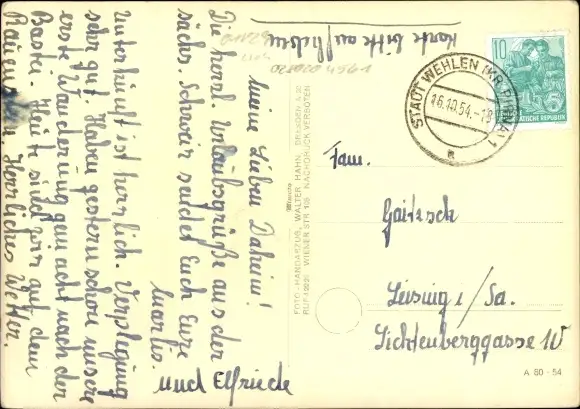 Karte bitte aufheben
Meine Lieben Daheim!
Die herzl. Urlaubsgrüße aus der
sächs. Schweiz sendet Euch Eure
Unterkunft ist herrlich. Verpflegung
sehr gut. Haben gestern schon unsere
erste Wanderung gemacht nach der
Bastei. Heute sind wir auf dem
Rauenstein. Herrliches Wetter.
und Elfriede
FOTO-HANDABZUG, WALTER HAHN, DRESDEN A 20
WIENER STR. 108 NACHDRUCK VERBOTEN
10
STADT WEHLEN (KR. PIRNA) 1
16.10.54.-18
a
Fam.
Leisnig i/Sa.
Lichtenberggasse 10
A 80 - 54